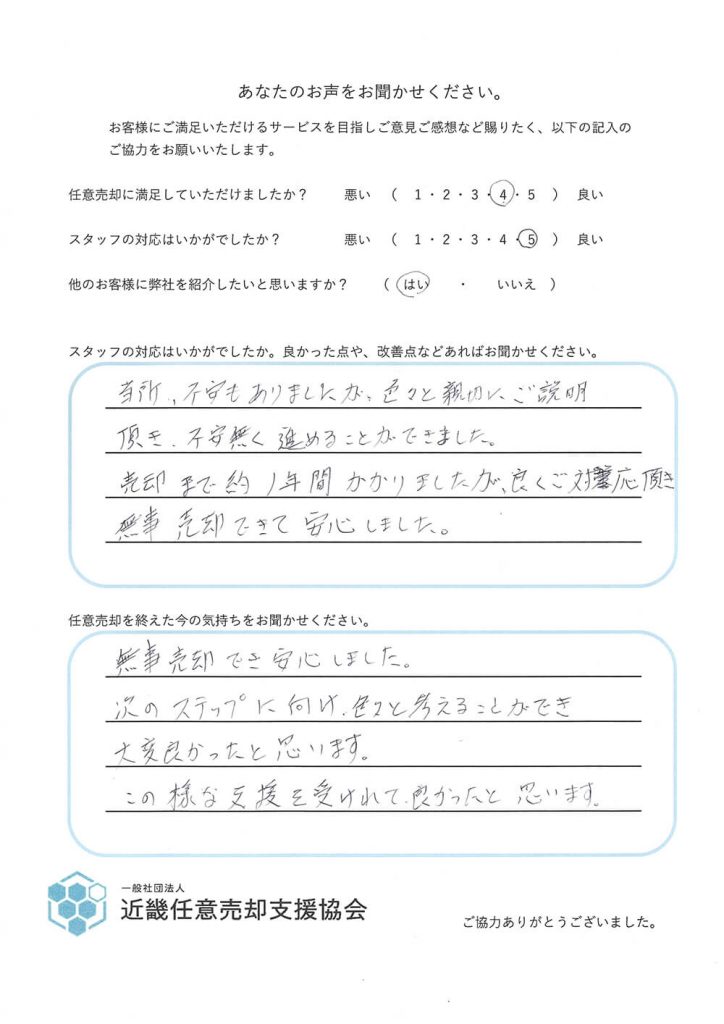 あなたのお声をお聞かせください。
お客様にご満足いただけるサービスを目指しご意見ご感想など賜りたく、以下の記入の
ご協力をお願いいたします。
任意売却に満足していただけましたか？ 悪い （ 1・2・3・4・5 ） 良い
スタッフの対応はいかがでしたか？ 悪い （ 1・2・3・4・5 ） 良い
他のお客様に弊社を紹介したいと思いますか？ （ はい ・ いいえ ）
スタッフの対応はいかがでしたか。良かった点や、改善点などあればお聞かせください。
当所、不安もありましたが、色々と親切に、ご説明
頂き、不安無く進めることができました。
売却まで約1年間かかりましたが、良くご対応頂き
無事売却できて安心しました。
任意売却を終えた今の気持ちをお聞かせください。
無事売却でき安心しました。
次のステップに向け、色々と考えることができ
大変良かったと思います。
この様な支援を受けれて、良かったと思います。
一般社団法人
近畿任意売却支援協会
ご協力ありがとうございました。